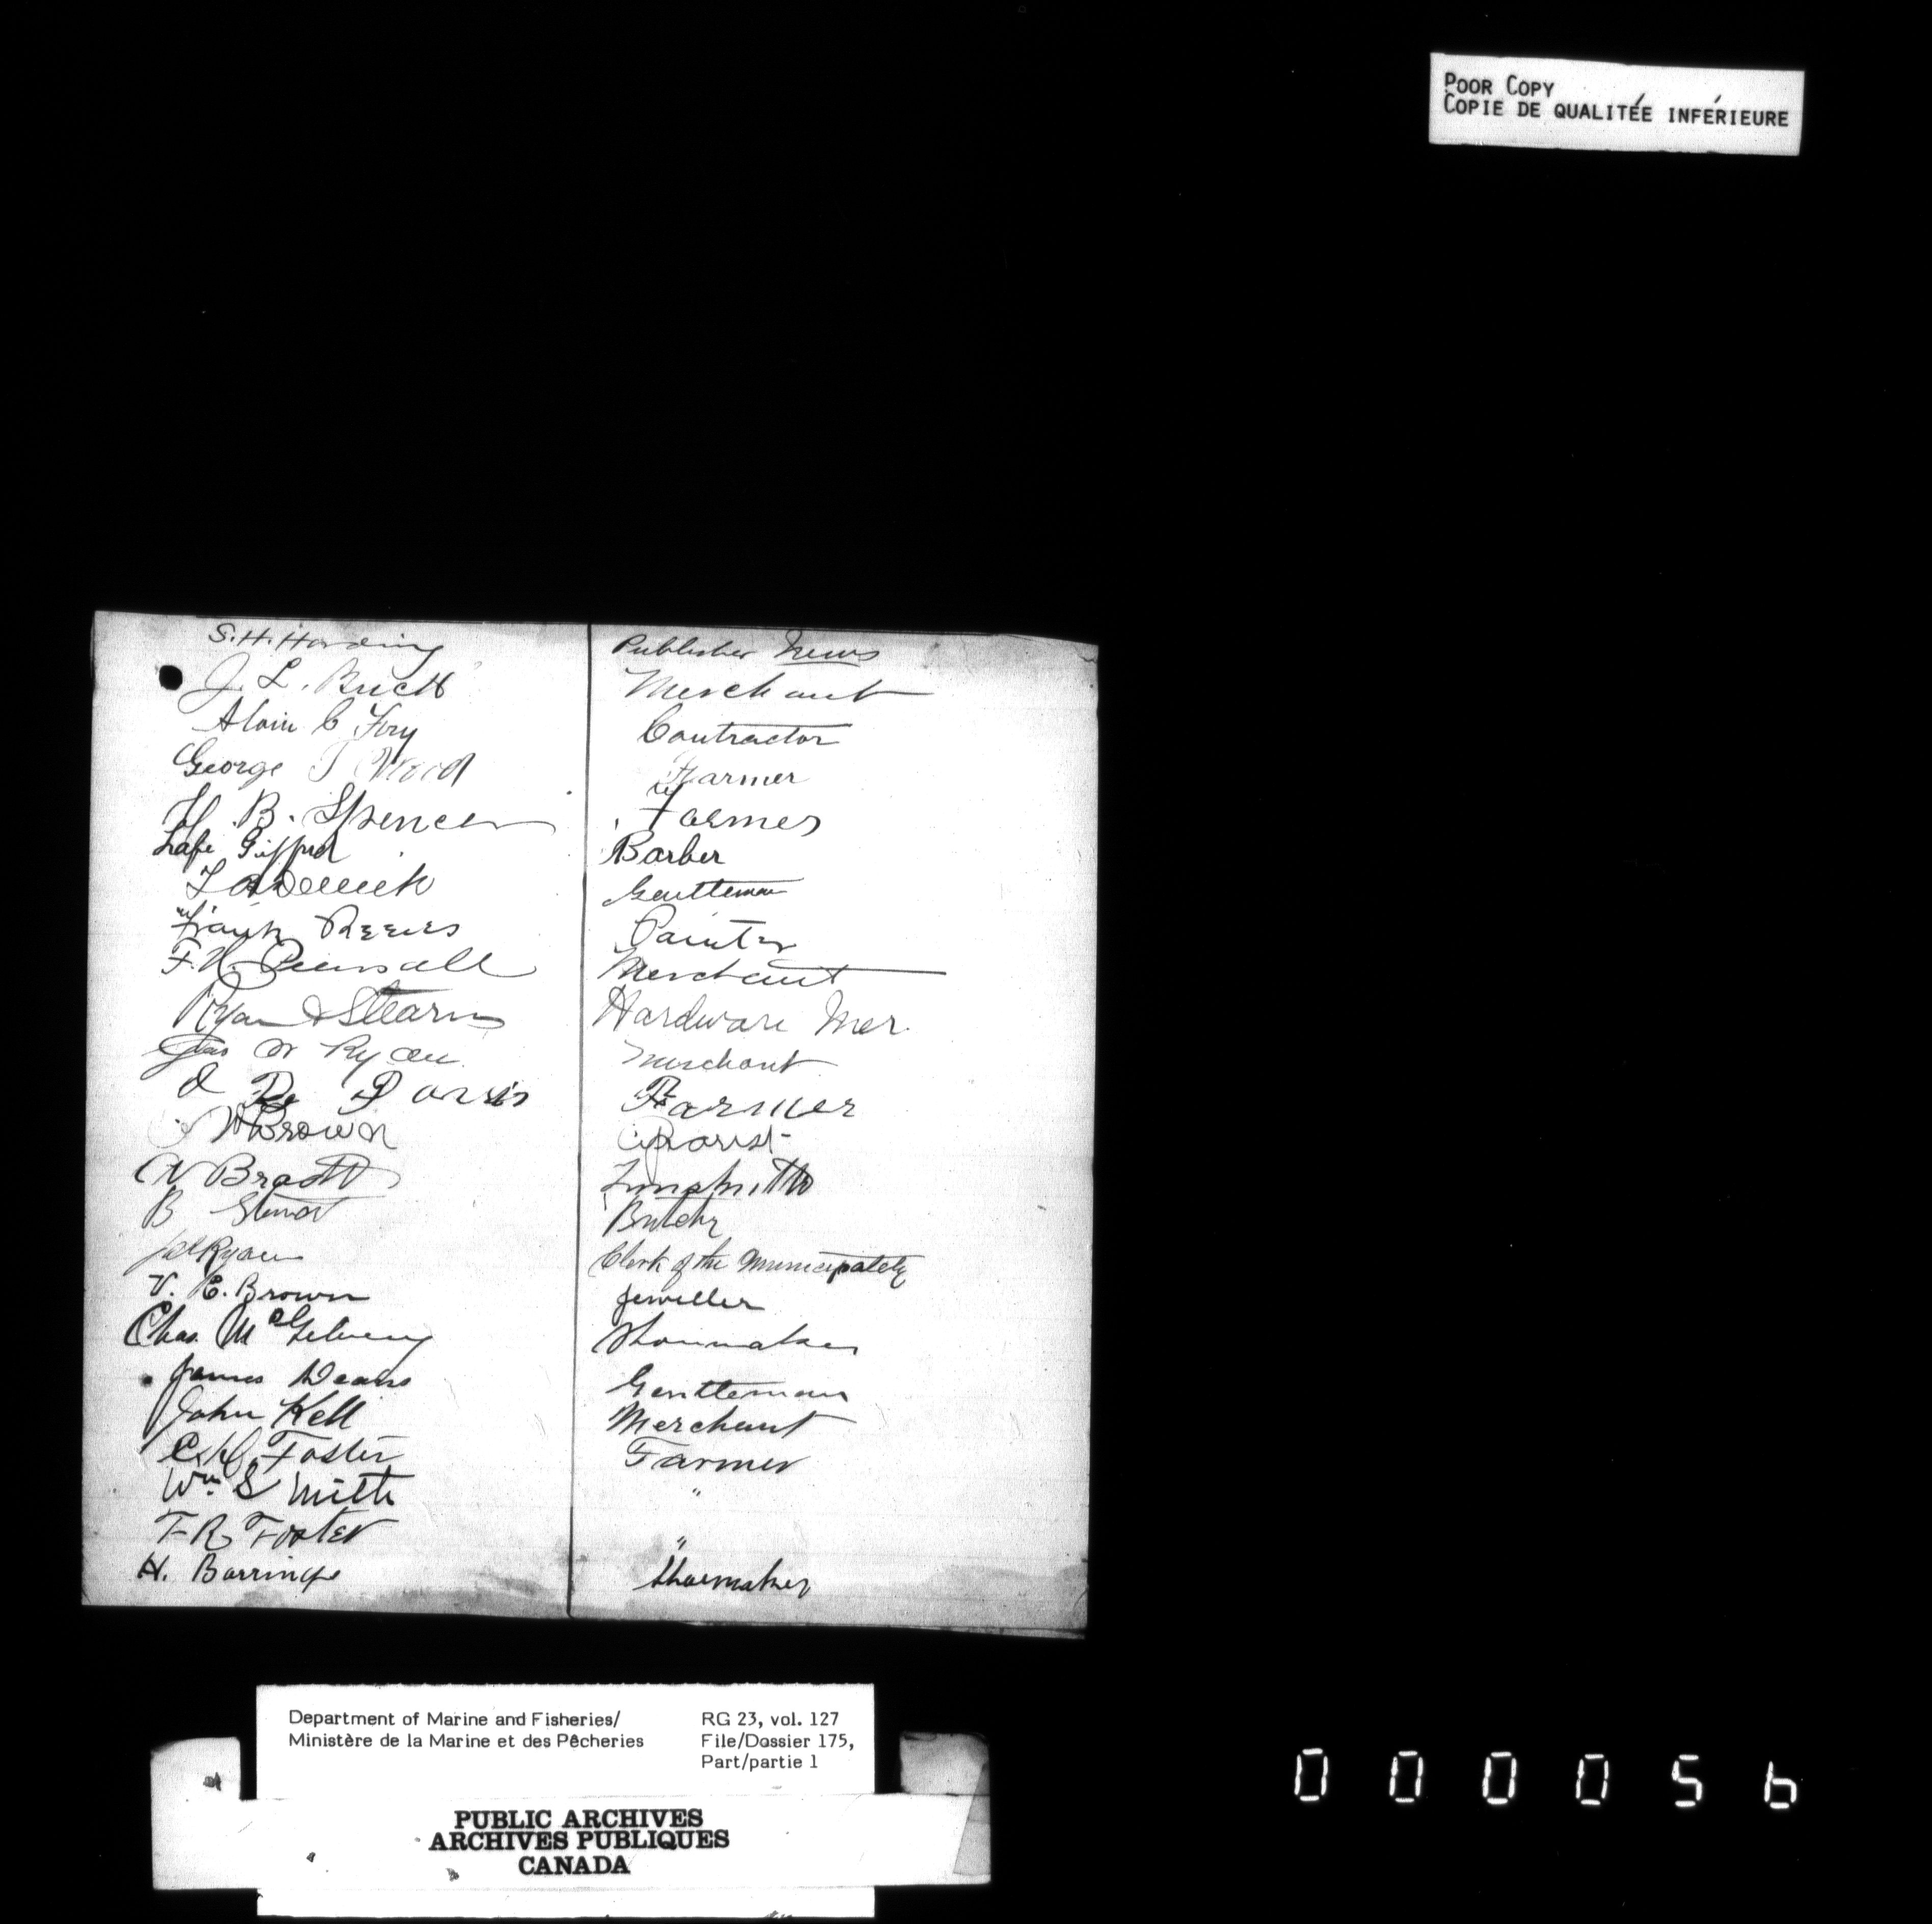 POOR COPY
COPIE DE QUALITÉE INFÉRIEURE
S. H. Harding Publisher News
J. L. Buck Merchant
Alvin C Fory Contractor
George T Wood Farmer
H. B. Spencer Farmer
Lafe Gifford Barber
Gentleman
Frank Reeves Painter
F. H. Pearsall Merchant
Ryan & Stearns Hardware Mer.
Jas W Ryan Merchant
Farmer
W Brown
W Bradt Tinsmith
B Stewart Butcher
Ryan Clerk of the Municipality
V. E. Brown Jeweller
Chas. McGilvery Shoemaker
James Deans Gentleman
John Kell Merchant
C. H. Foster Farmer
Wm. Smith "
F R Foster "
H. Barringer Shoemaker
Department of Marine and Fisheries/ RG 23, vol. 127
Ministère de la Marine et des Pêcheries File/Dossier 175,
Part/partie 1
PUBLIC ARCHIVES
ARCHIVES PUBLIQUES
CANADA
000056